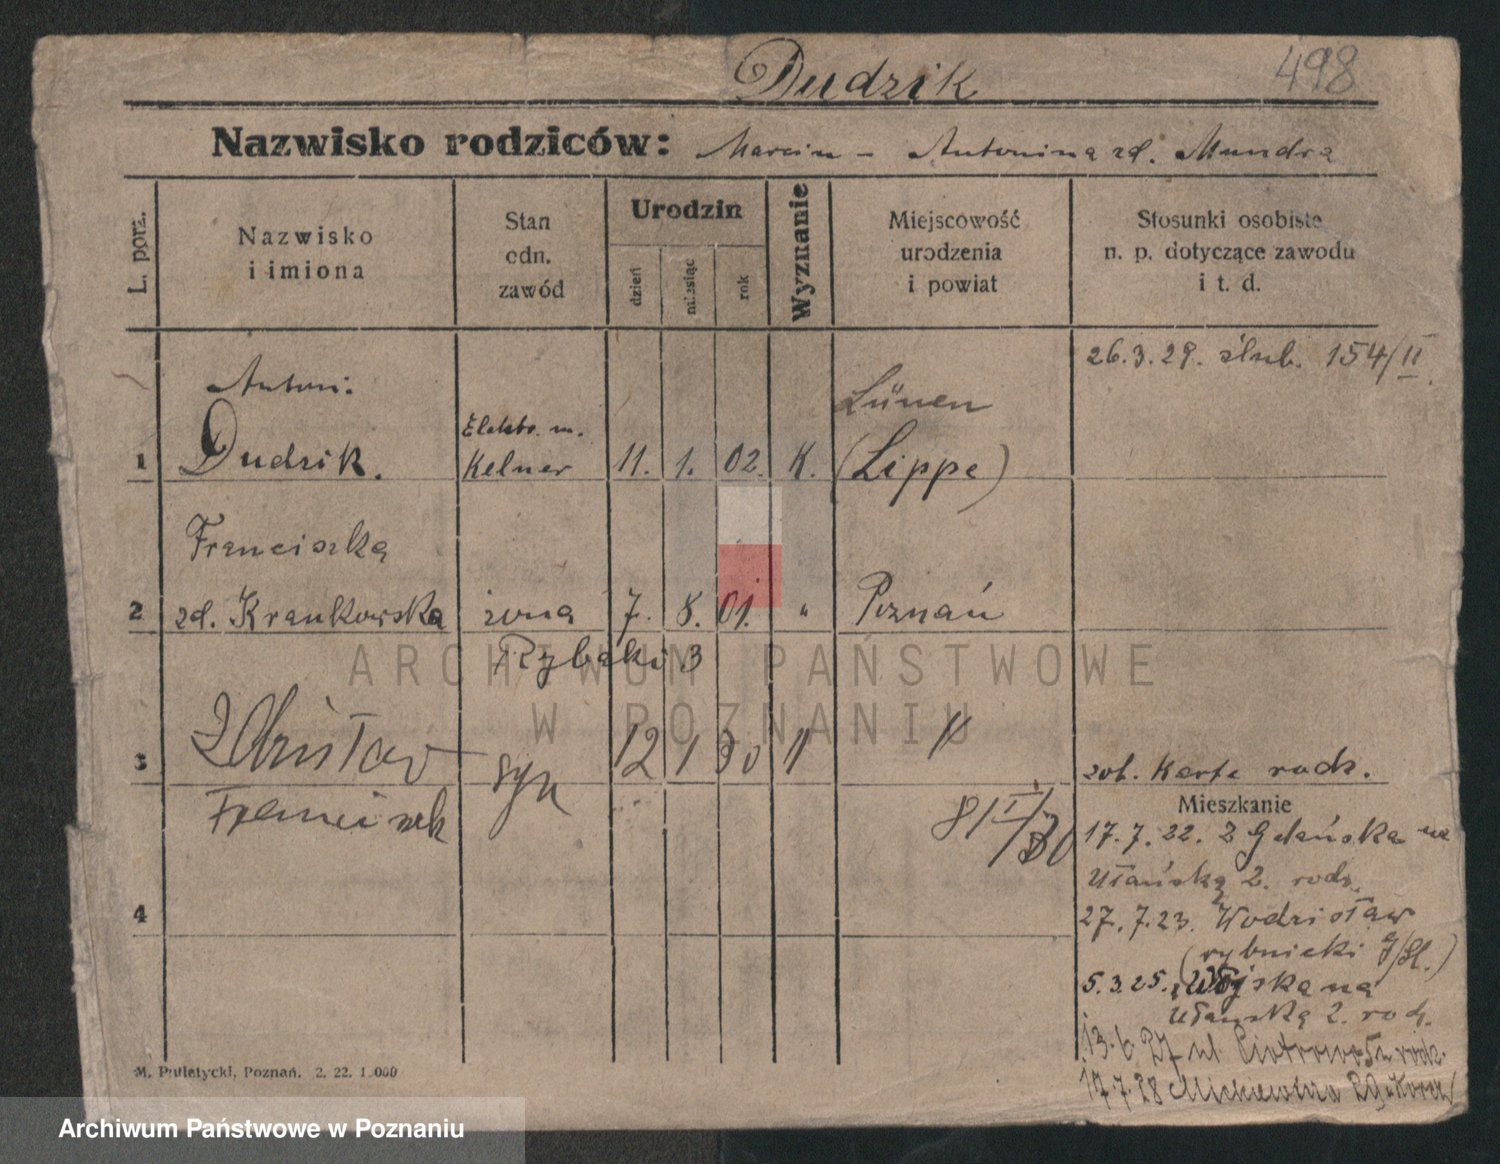 Dudzik
498
Nazwisko rodziców: Marcin - Antonina zd. Mundra
L. porz.
Nazwisko
i imiona
Stan
odn.
zawód
Urodzin
dzień
miesiąc
rok
Wyznanie
Miejscowość
urodzenia
i powiat
Stosunki osobiste
n. p. dotyczące zawodu
i t. d.
26.3.29. ślub. 154/II
Antoni
1 Dudzik. Elektr. m. Kelner 11. 1. 02. K. Lünen (Lippe)
Franciszka
2 zd. Krankowska żona 7. 8. 01. " Poznań
Rybaki 3
3 Zdzisław syn 12 1 30 " "
Franciszek
8/I/30
zob. Karta rodz.
Mieszkanie
17.7.22. z Gdańska na
Ułańską 2. rodz.
27.7.23. Wodzisław
(rybnicki G/Śl.)
5.3.25. z Wojska na
Ułańską 2. rodz.
13.6.27 ul
17.7.28
4
M. Putiatycki, Poznań. 2. 22. 1.000
ARCHIWUM PAŃSTWOWE
W POZNANIU
Archiwum Państwowe w Poznaniu